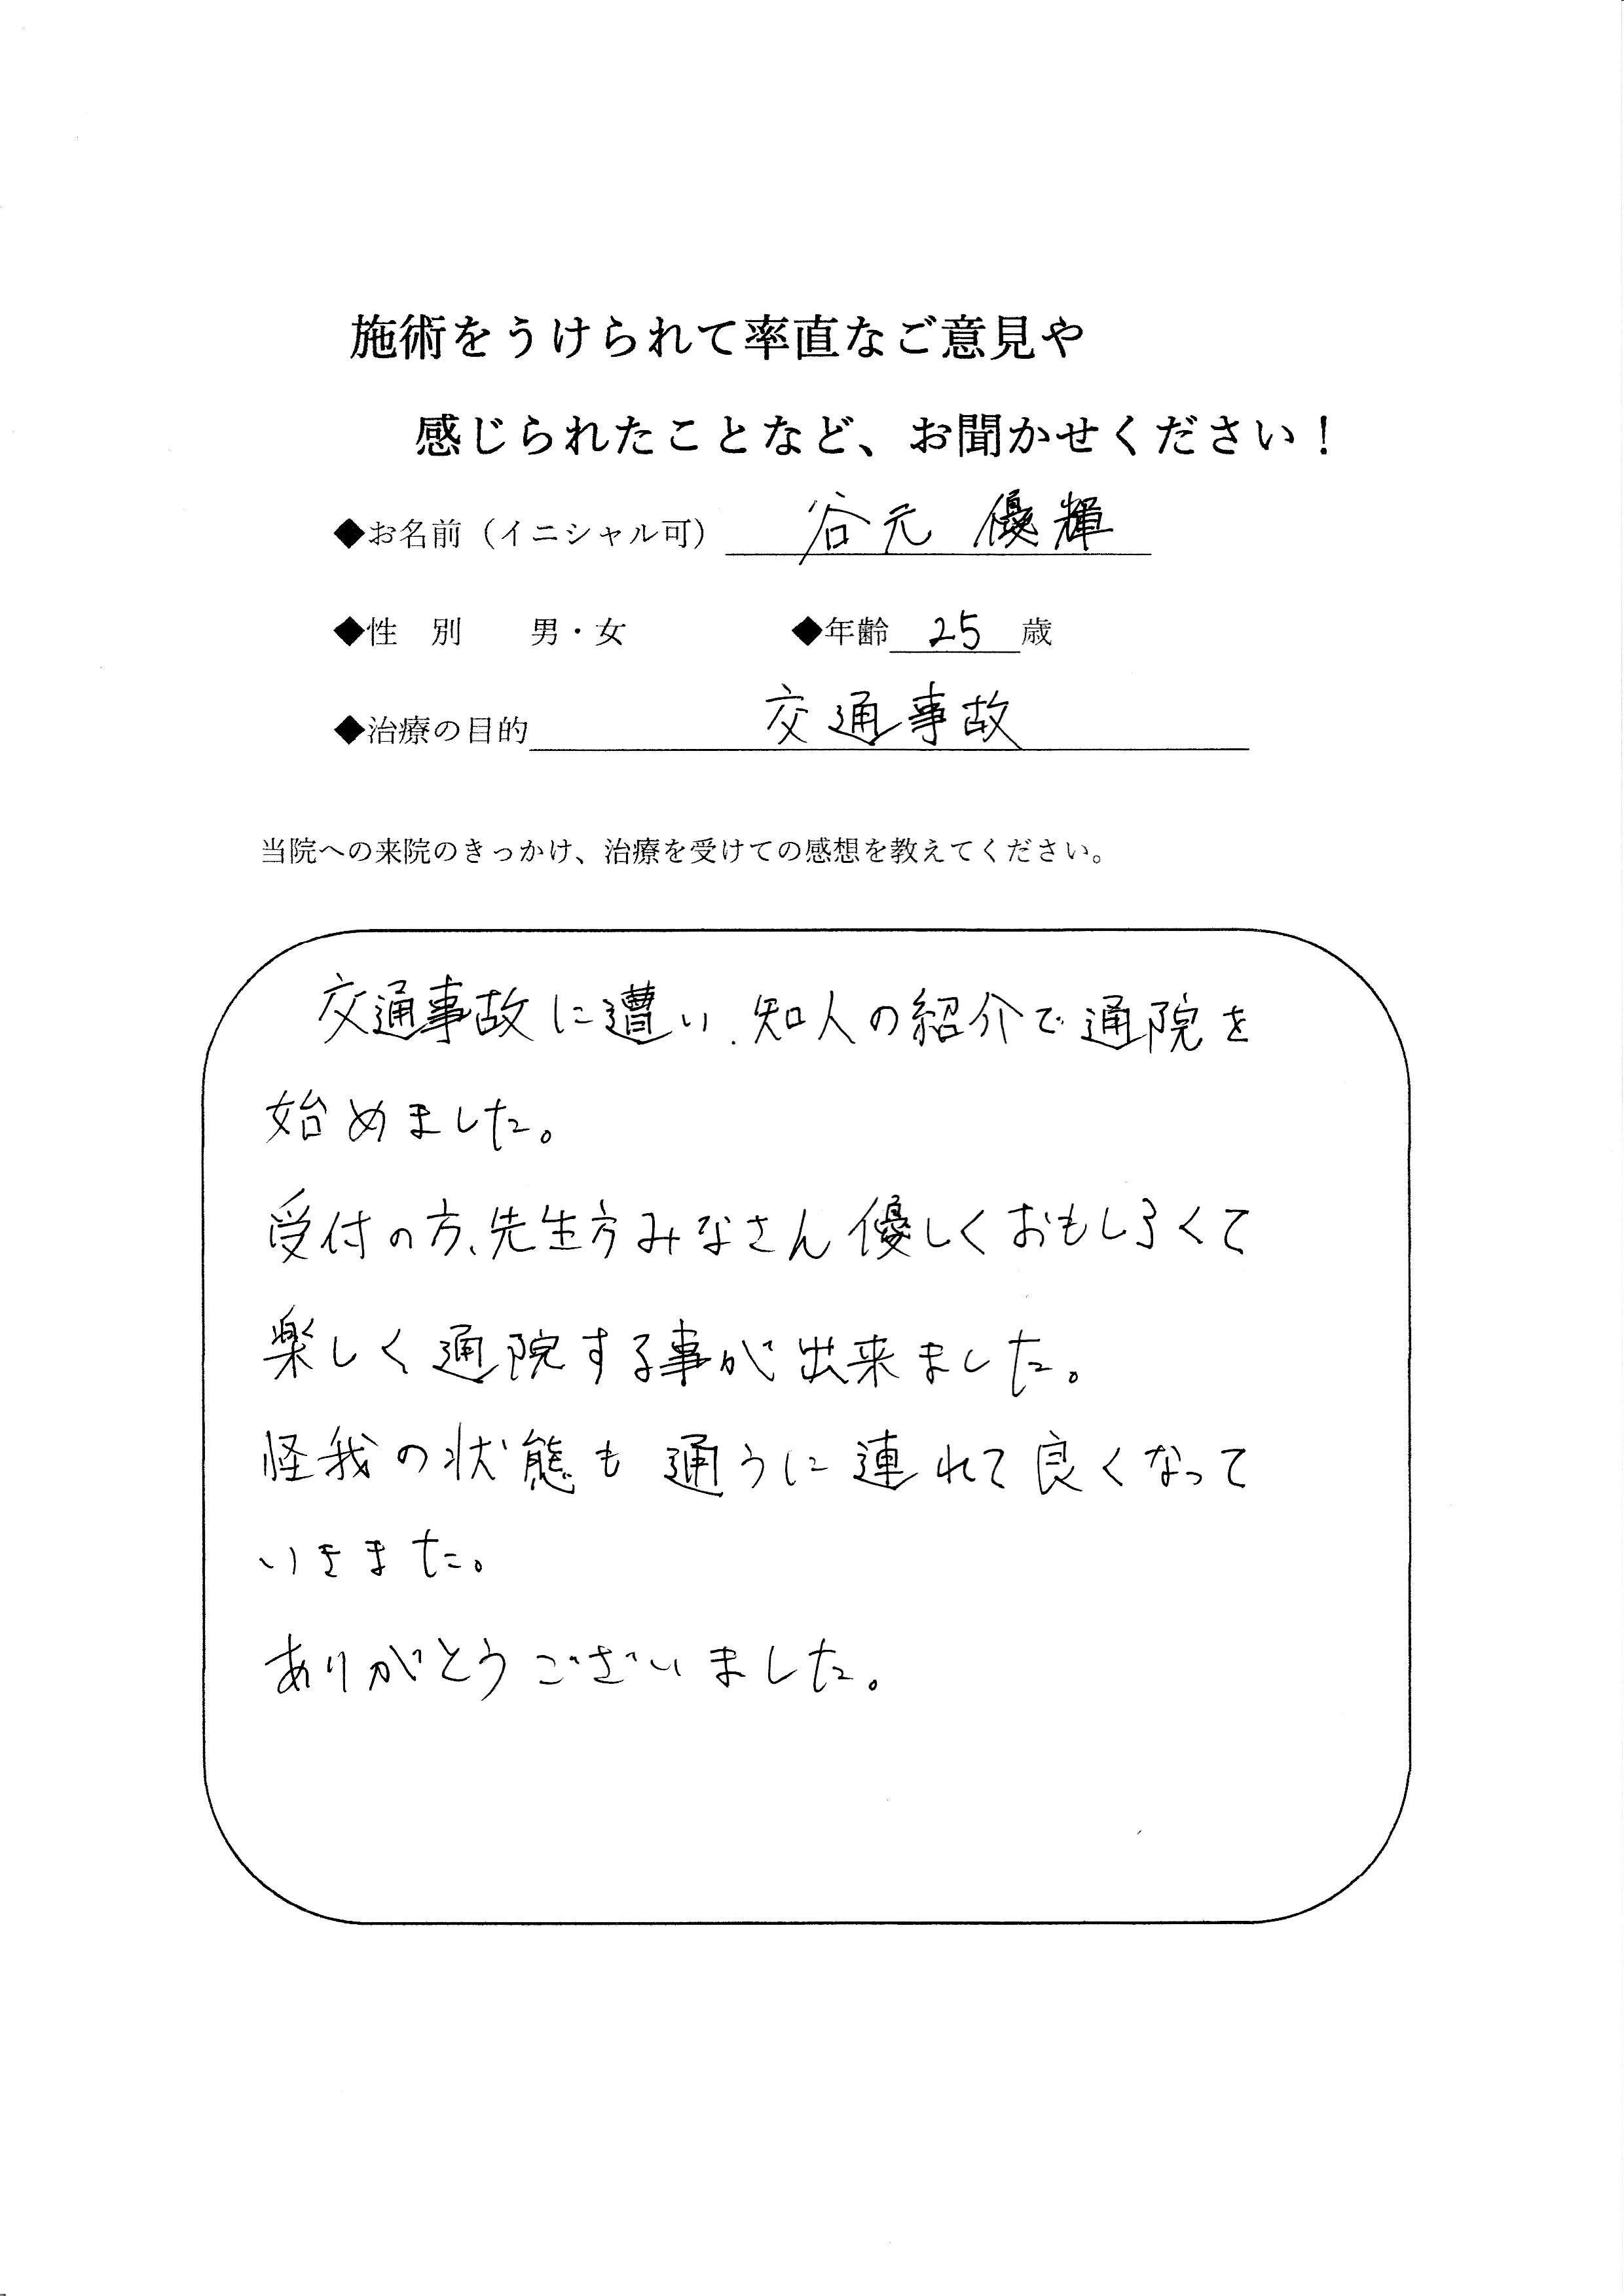 施術をうけられて率直なご意見や
感じられたことなど、お聞かせください！
◆お名前（イニシャル可） 谷元 優輝
◆性 別 男・女 ◆年齢 25 歳
◆治療の目的 交通事故
当院への来院のきっかけ、治療を受けての感想を教えてください。
交通事故に遭い、知人の紹介で通院を
始めました。
受付の方、先生方みなさん優しくおもしろくて
楽しく通院する事が出来ました。
怪我の状態も通うに連れて良くなって
いきまた。
ありがとうございました。